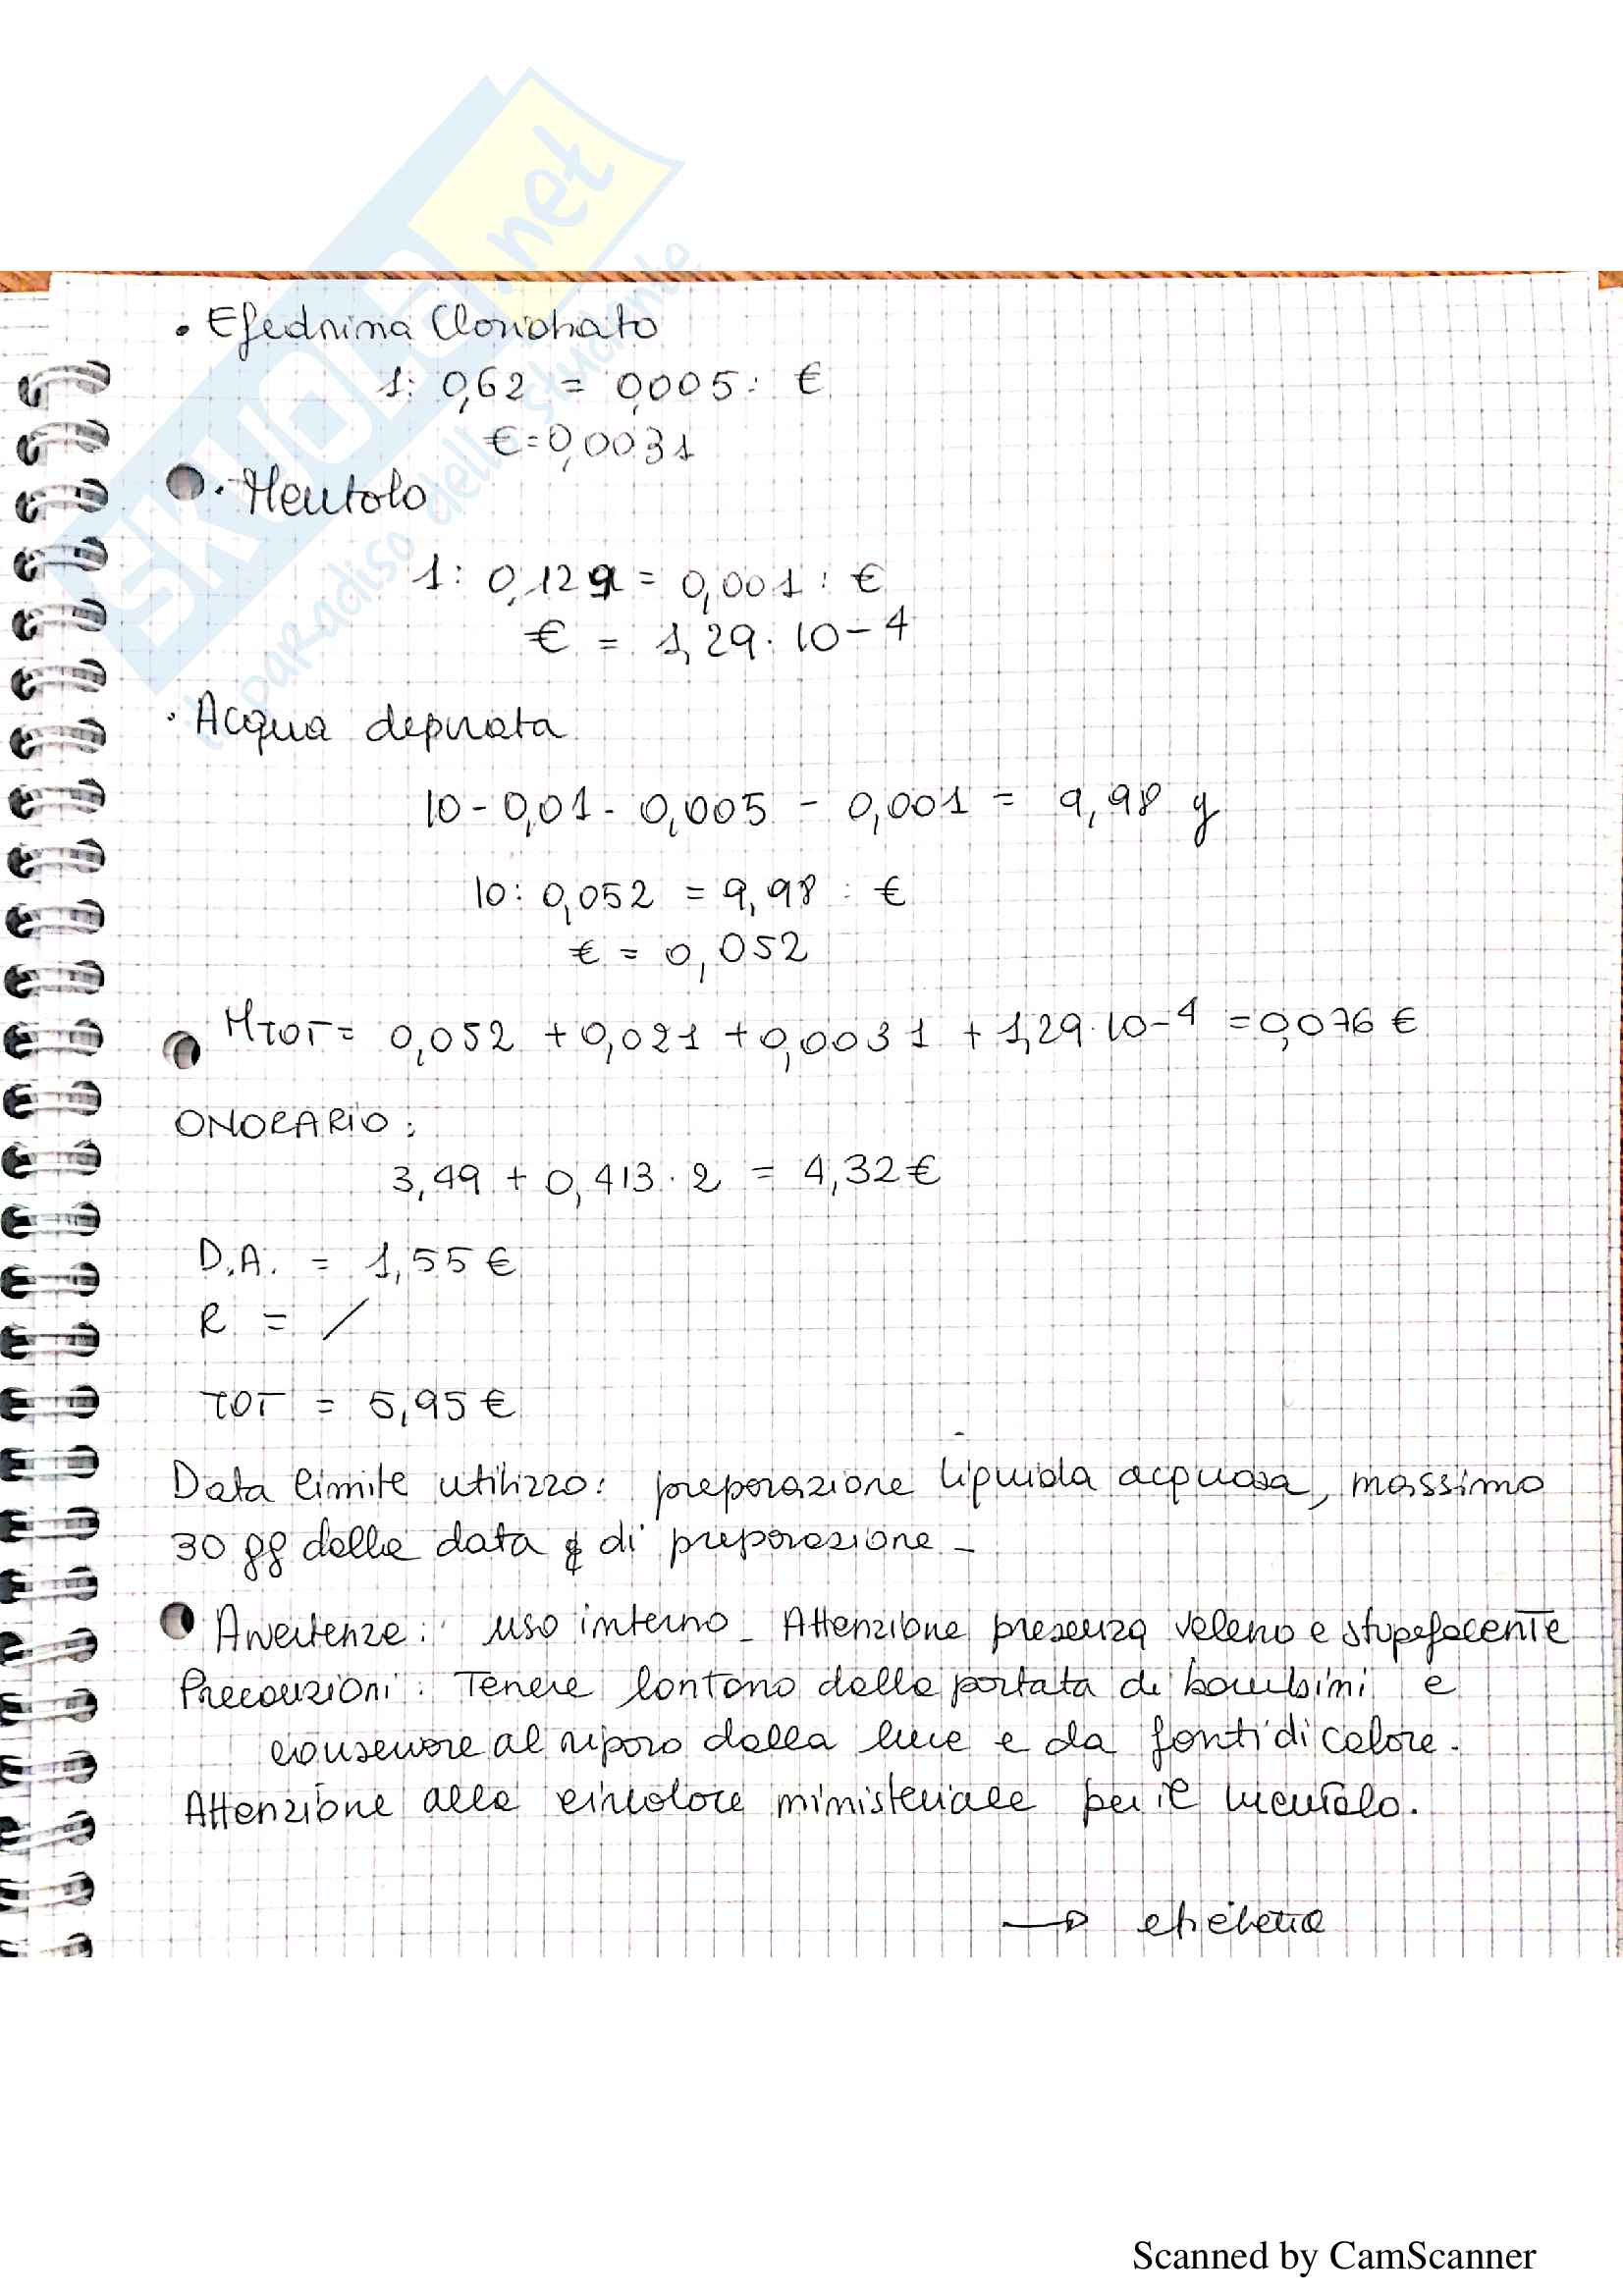 SKUOLA.net
il paradiso dello studente
• Efedrina Cloridrato
1: 0,62 = 0,005 : €
€ = 0,0031
• Mentolo
1 : 0,129 = 0,001 : €
€ = 1,29 · 10-4
· Acqua depurata
10 - 0,01 - 0,005 - 0,001 = 9,98 g
10 : 0,052 = 9,98 : €
€ = 0,052
MTOT = 0,052 + 0,021 + 0,0031 + 1,29 · 10-4 = 0,076 €
ONORARIO :
3,49 + 0,413 · 2 = 4,32 €
D.A. = 1,55 €
R = /
TOT = 5,95 €
Data limite utilizzo: preparazione liquida acquosa, massimo
30 gg dalla data di preparazione -
Avvertenze: uso interno - Attenzione presenza veleno e stupefacente
Precauzioni: Tenere lontano dalla portata di bambini e
conservare al riparo dalla luce e da fonti di calore.
Attenzione alla circolare ministeriale per il mentolo.
→ etichetta
Scanned by CamScanner